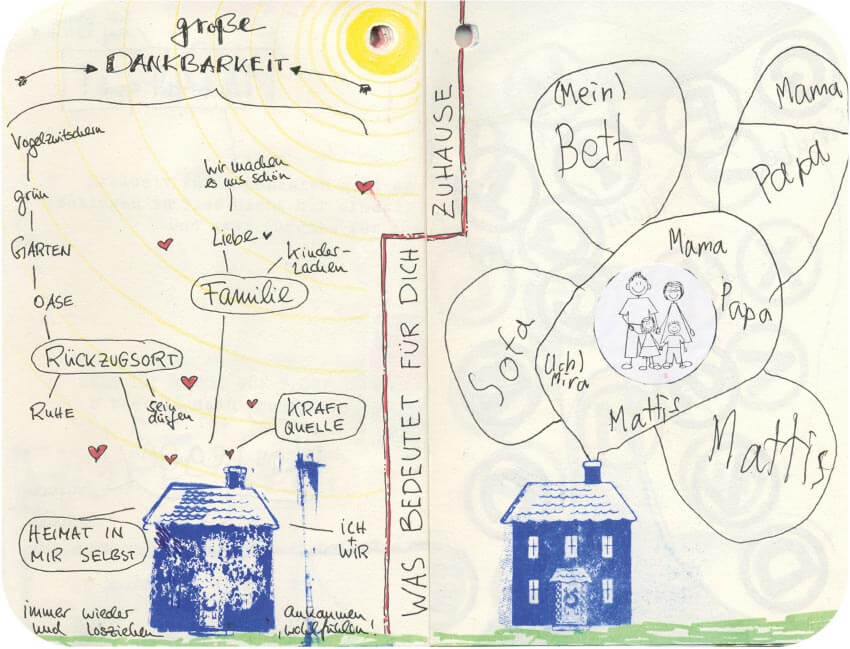 große
DANKBARKEIT
Vogelzwitschern
grün
GARTEN
OASE
RÜCKZUGSORT
RUHE
sein
dürfen
wir machen
es uns schön
Liebe
Kinder-
lachen
Familie
KRAFT
QUELLE
HEIMAT IN
MIR SELBST
ICH
+
WIR
immer wieder
und losziehen
ankommen
"wohlfühlen!"
WAS BEDEUTET FÜR DICH
ZUHAUSE
(Mein)
Bett
Mama
Papa
Mama
Papa
(Ich)
Mira
Mattis
Sofa
Mattis